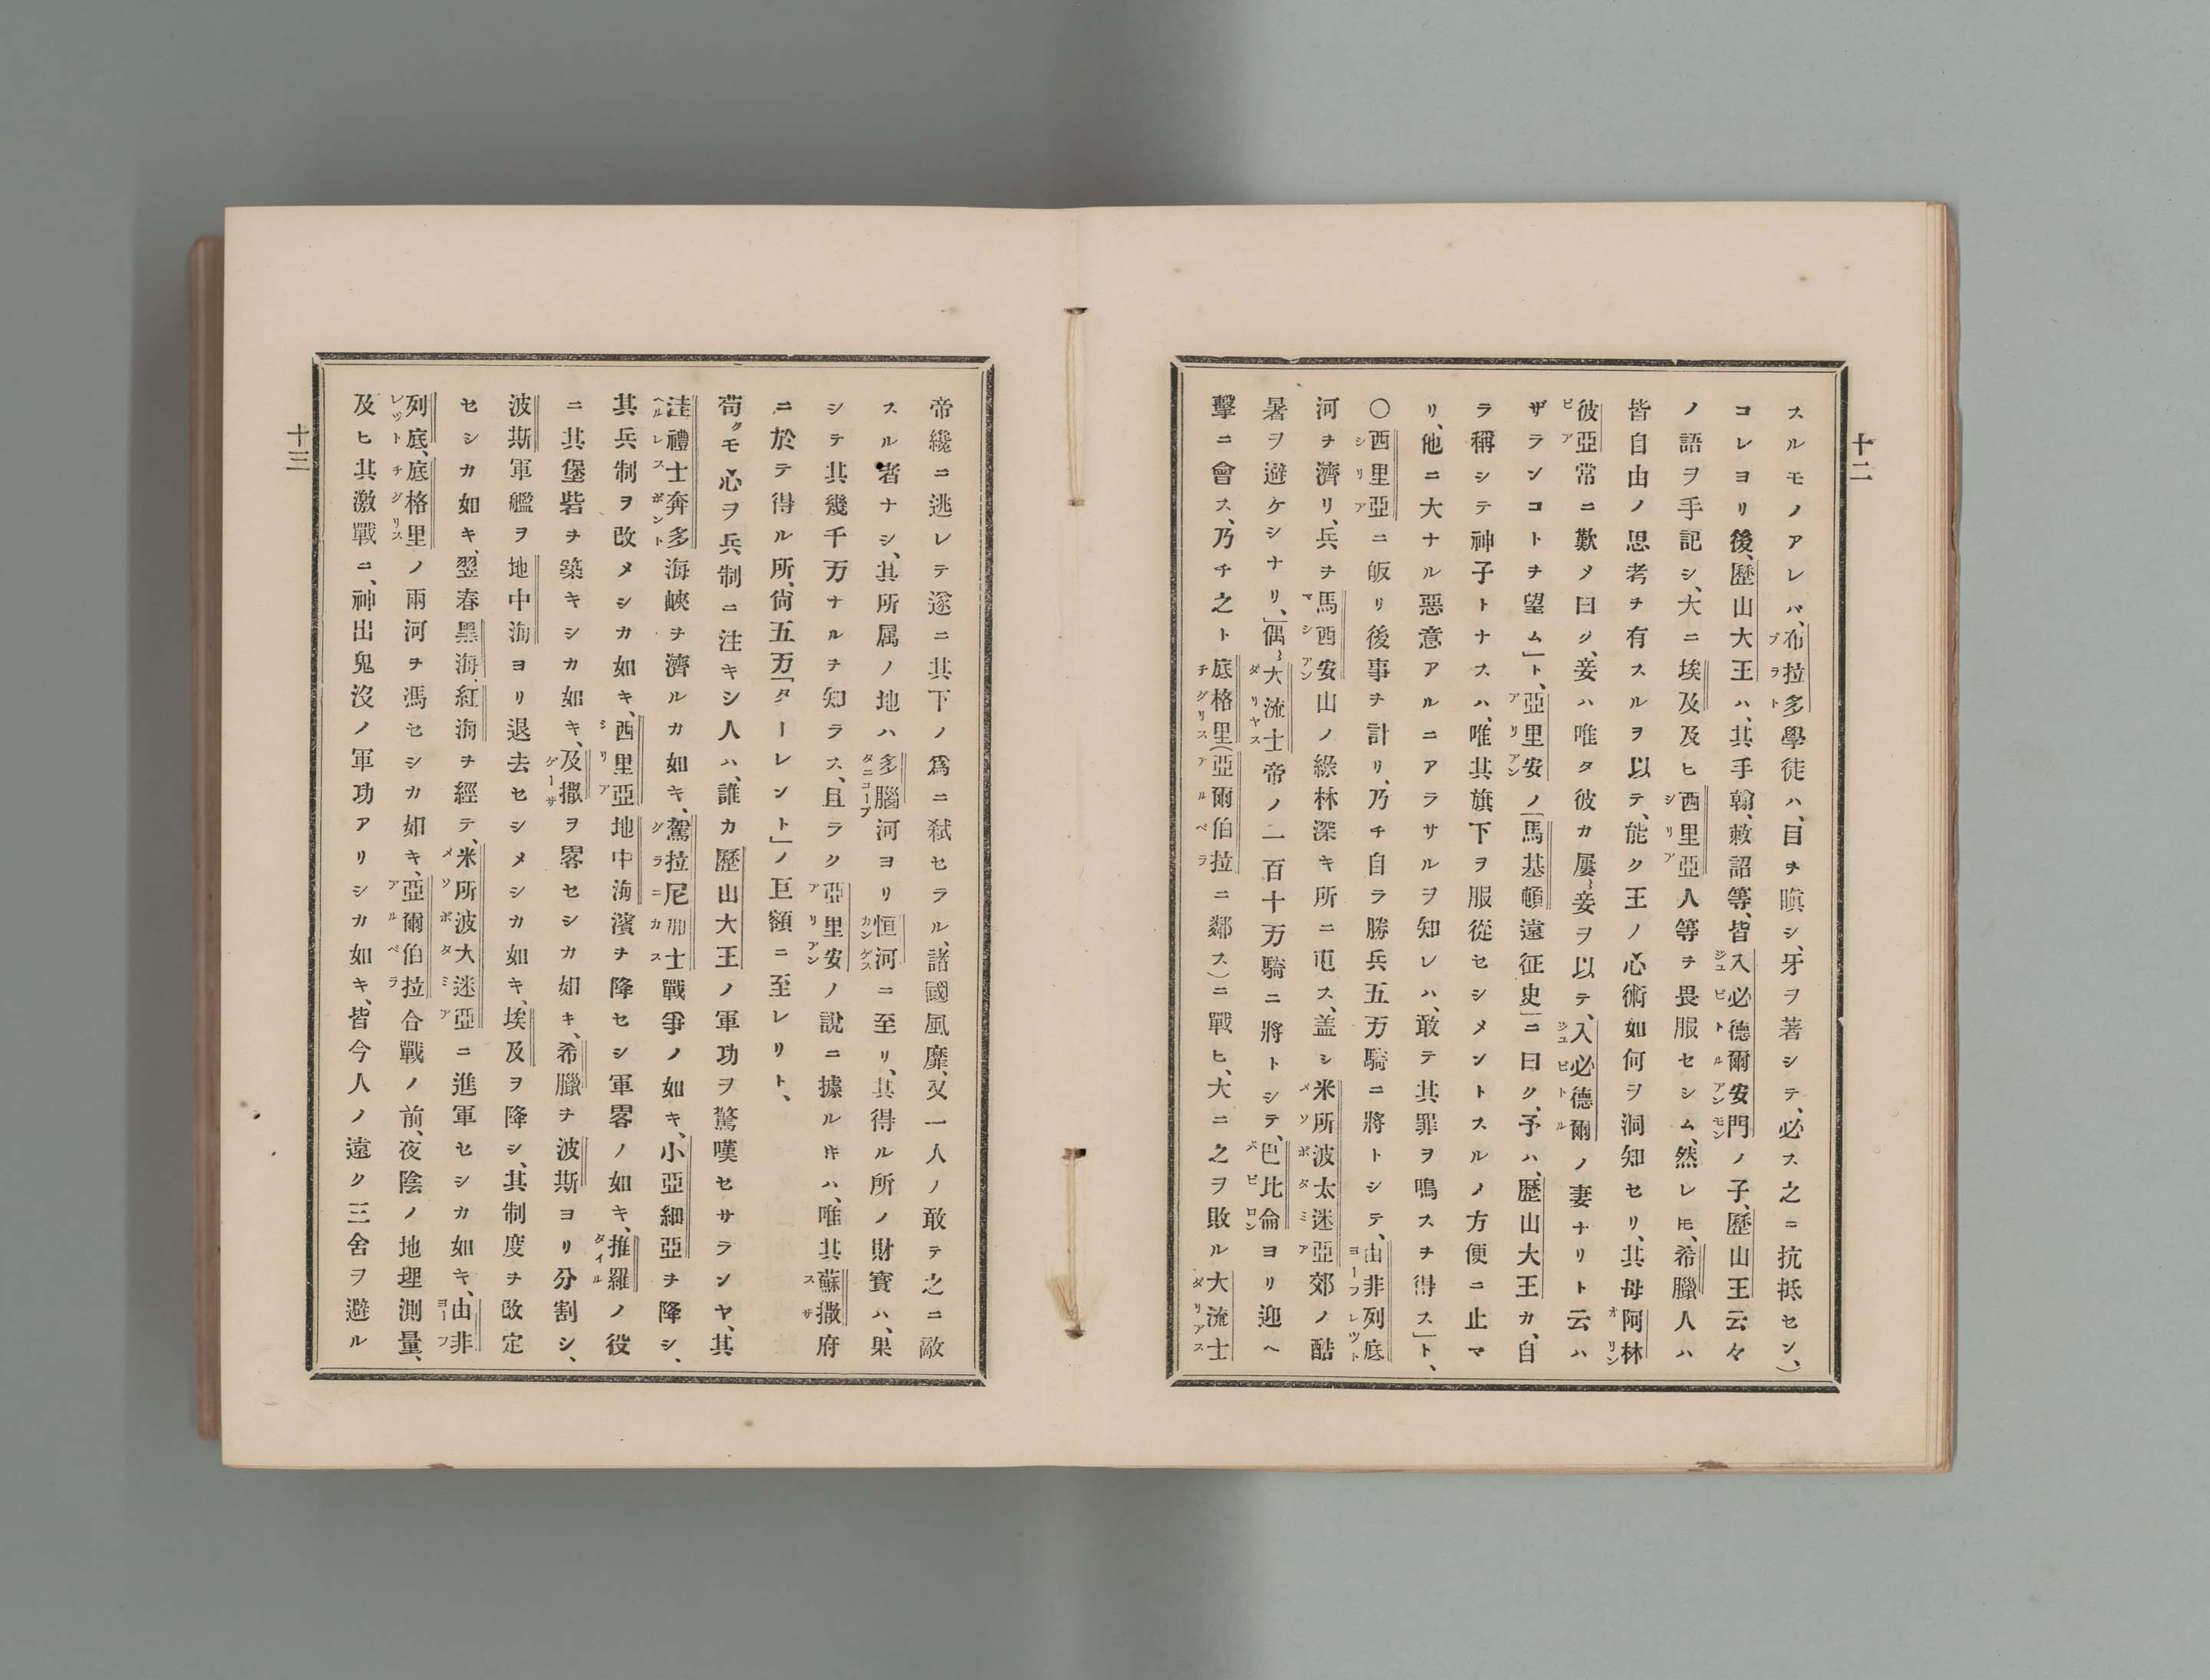 十二
スルモノアレバ、布拉多學徒ハ、目チ瞋シ、牙ヲ著シテ、必ス之ニ抗抵セン、)
コレヨリ後、歷山大王ハ、其手翰、敕詔等、皆入必德爾安門ノ子、歷山王云々
ノ語ヲ手記シ、大ニ埃及及ヒ西里亞人等チ畏服セシム、然レ𪜈、希臘人ハ
皆自由ノ思考チ有スルヲ以テ、能ク王ノ心術如何ヲ洞知セリ、其母阿林
彼亞常ニ歎メ曰ク、妾ハ唯タ彼カ屢〻妾ヲ以テ、入必德爾ノ妻ナリト云ハ
ザランコトチ望ム」ト、亞里安ノ「馬基頓遠征史」ニ曰ク、予ハ、歷山大王カ、自
ラ稱シテ神子トナスハ、唯其旗下ヲ服從セシメントスルノ方便ニ止マ
リ、他ニ大ナル惡意アルニアラサルヲ知レハ、敢テ其罪ヲ鳴スチ得ス」ト、
〇西里亞ニ皈リ後事チ計リ、乃チ自ラ勝兵五万騎ニ將トシテ、由非列底
河ヲ濟リ、兵ヲ馬西安山ノ綠林深キ所ニ屯ス、盖シ米所波太迷亞郊ノ酷
暑ヲ避ケシナリ、偶〻大流士帝ノ一百十万騎ニ將トシテ、巴比侖ヨリ迎ヘ
擊ニ會ス、乃チ之ト底格里(亞爾伯拉ニ鄰ス)ニ戰ヒ、大ニ之ヲ敗ル大流士
帝纔ニ逃レテ遂ニ其下ノ爲ニ弑セラル、諸國風靡、又一人ノ敢テ之ニ敵
スル者ナシ、其所属ノ地ハ多腦河ヨリ恒河ニ至リ、其得ル所ノ財寶ハ、果
シテ其幾千万ナルチ知ラス、且ラク亞里安ノ說ニ據ル𪜈ハ、唯其蘇撒府
ニ於テ得ル所、尙五万「ターレント」ノ巨額ニ至レリト、
苟クモ心ヲ兵制ニ注キシ人ハ、誰カ歷山大王ノ軍功ヲ驚嘆セサランヤ、其
洼禮士奔多海峽チ濟ルカ如キ、駕拉尼加士戰爭ノ如キ、小亞細亞チ降シ、
其兵制ヲ改メシカ如キ、西里亞地中海濱チ降セシ軍畧ノ如キ、推羅ノ役
ニ其堡砦チ築キシカ如キ、及撒ヲ畧セシカ如キ、希臘チ波斯ヨリ分割シ、
波斯軍艦ヲ地中海ヨリ退去セシメシカ如キ、埃及ヲ降シ、其制度チ改定
セシカ如キ、翌春黑海、紅海チ經テ、米所波大迷亞ニ進軍セシカ如キ、由非
列底、底格里ノ兩河チ馮セシカ如キ、亞爾伯拉合戰ノ前、夜陰ノ地理測量、
及ヒ其激戰ニ、神出鬼沒ノ軍功アリシカ如キ、皆今人ノ遠ク三舍ヲ避ル
十三